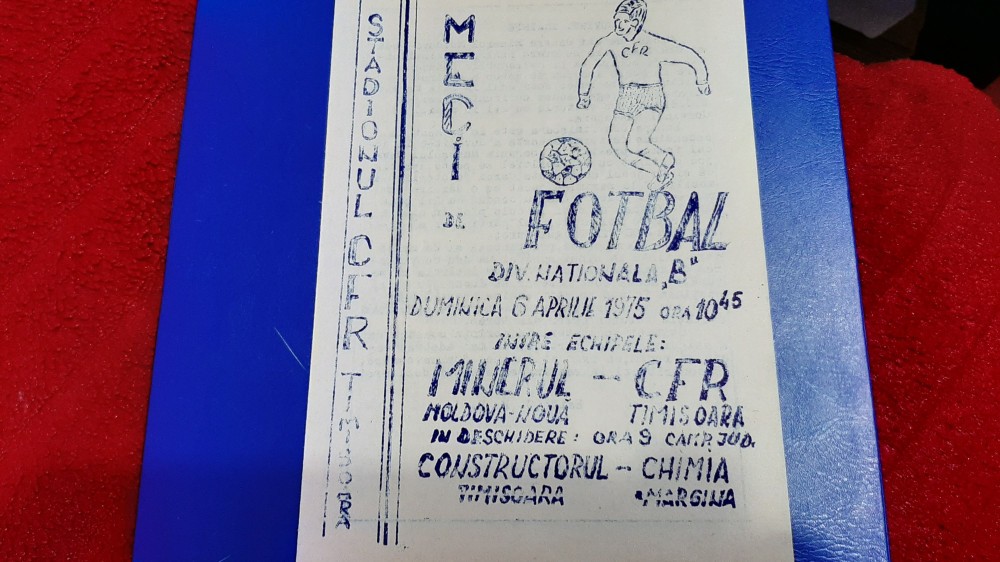 STADIONUL CFR TIMISOARA
MECI
DE
CFR
FOTBAL
DIV. NATIONALA „B"
DUMINICA 6 APRILIE 1975 ORA 10 45
INTRE ECHIPELE:
MINERUL - CFR
MOLDOVA-NOUA TIMISOARA
IN DESCHIDERE: ORA 9 CAMP. JUD.
CONSTRUCTORUL - CHIMIA
TIMISOARA MARGINA